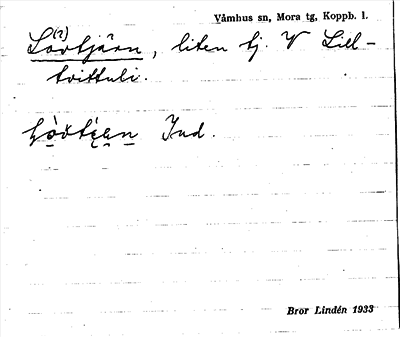 Våmhus sn, Mora tg, Koppb. l.
(?)
Lortjärn, liten tj. V Lill-
tvittuli.
Ind.
Bror Lindén 1933